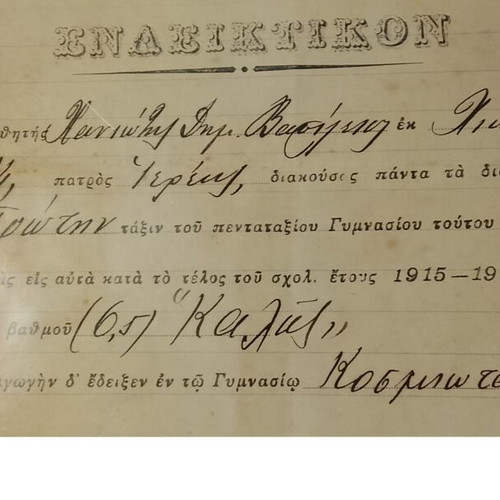 ΕΝΔΕΙΚΤΙΚΟΝ
θητὴς Χανιώτης Δημ. Βασίλειος ἐκ
πατρὸς Ἱερέως, διακούσας πάντα τὰ δι
Πρώτην τάξιν τοῦ πενταταξίου Γυμνασίου τούτου
εἰς αὐτὰ κατὰ τὸ τέλος τοῦ σχολ. ἔτους 1915—19
βαθμοῦ (6,5) "Καλῶς„
αγωγὴν δ' ἔδειξεν ἐν τῷ Γυμνασίῳ Κοσμιωτ